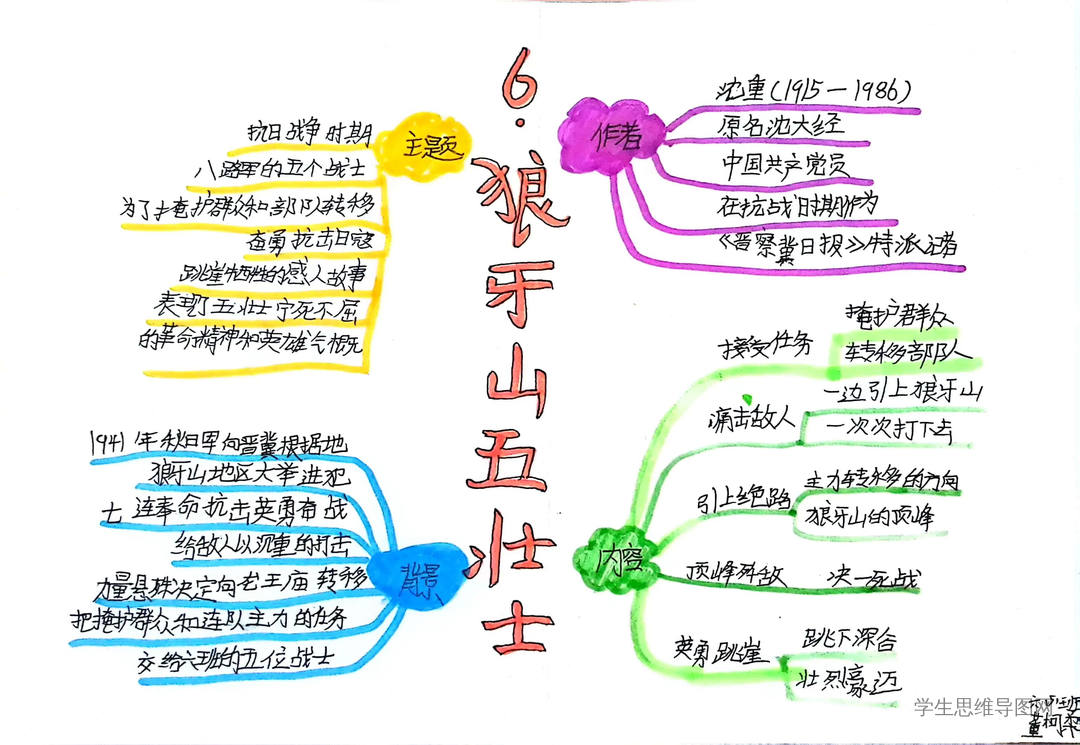 6.狼牙山五壮士
主题
抗日战争时期
八路军的五个战士
为了掩护群众和部队转移
奋勇抗击日寇
跳崖牺牲的感人故事
表现了五壮士宁死不屈
的革命精神和英雄气概
作者
沈重(1915—1986)
原名沈大经
中国共产党员
在抗战时期作为
《晋察冀日报》特派记者
背景
1941年秋日军向晋冀根据地
狼牙山地区大举进犯
七连奉命抗击英勇奋战
给敌人以沉重的打击
力量悬殊决定向龙王庙转移
把掩护群众和连队主力的任务
交给六班的五位战士
内容
接受任务
掩护群众
转移部队
痛击敌人
一边引上狼牙山
一次次打下去
引上绝路
主力转移的方向
狼牙山的顶峰
顶峰歼敌
决一死战
英勇跳崖
跳下深谷
壮烈豪迈
学生思维导图网